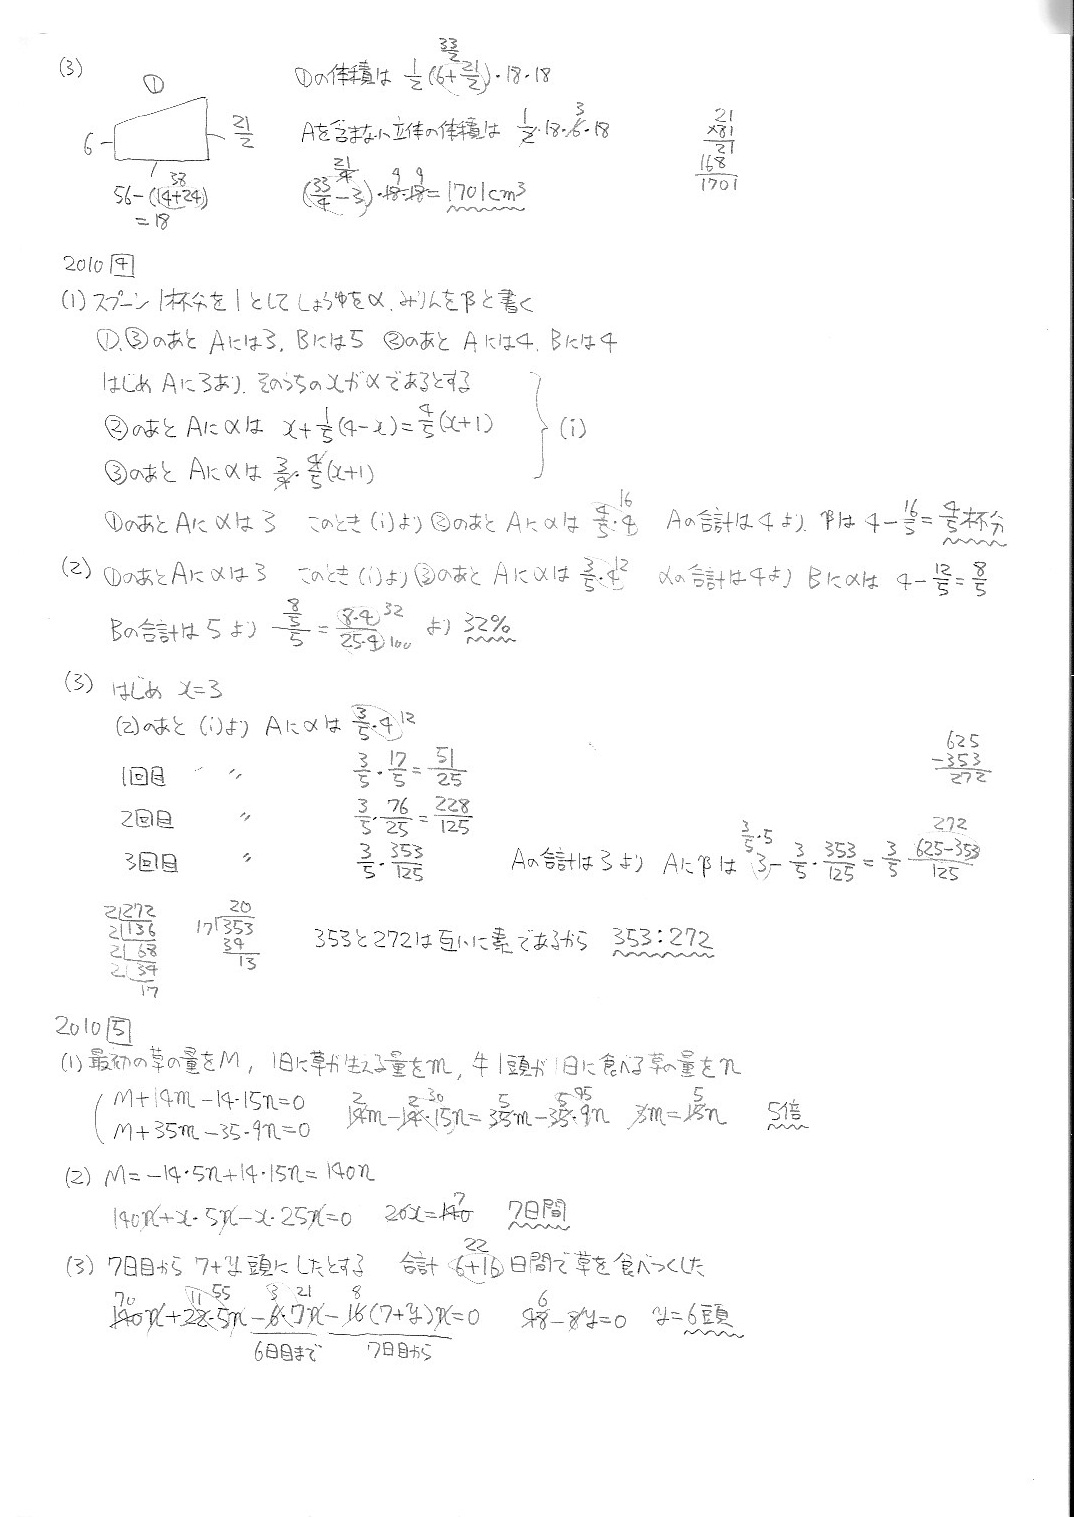 (3)
① ①の体積は 1/2(6+21/2)・18・18 33/2
6 21/2 Aを含まない立体の体積は 1/2・18・6・18 3
56-(14+24) 38
=18
(33/4-3)・18・18=1701cm³ 21/4 9 9
21
×81
21
168
1701
2010 [4]
(1) スプーン1杯分を1としてしょうゆをα、みりんをβと書く
①、③のあと Aには3、Bには5 ②のあと Aには4、Bには4
はじめ Aに3あり、そのうちのxがαであるとする
②のあと Aにαは x+1/5(4-x)=4/5(x+1) (i)
③のあと Aにαは 3/4・4/5(x+1)
①のあと Aにαは3 このとき(i)より②のあと Aにαは 4/5・4 16 Aの合計は4より、βは 4-16/5=4/5杯分
(2) ①のあとAにαは3 このとき(i)より③のあと Aにαは 3/5・4 12 αの合計は4より Bにαは 4-12/5=8/5
Bの合計は5より (8/5)/5=8・4/25・4 32 100 より 32%
(3) はじめ x=3
(2)のあと (i)より Aにαは 3/5・4 12
1回目 〃 3/5・17/5=51/25
2回目 〃 3/5・76/25=228/125
3回目 〃 3/5・353/125 Aの合計は3より Aにβは 3-3/5・353/125=3/5・(625-353)/125 3/5・5 272
625
-353
272
2)272
2)136
2)68
2)34
17
20
17)353
34
13
353と272は互いに素であるから 353:272
2010 [5]
(1) 最初の草の量をM, 1日に草が生える量をm, 牛1頭が1日に食べる草の量をn
M+14m-14・15n=0 14m-14・15n=35m-35・9n 2 2 30 5 5 45 3m=15n 5 5倍
M+35m-35・9n=0
(2) M=-14・5n+14・15n=140n
140n+x・5n-x・25n=0 20x=140 7 7日間
(3) 7日目から 7+y頭にしたとする 合計 6+16 22 日間で草を食べつくした
140n+22・5n-6・7n-16(7+y)n=0 70 11 55 3 21 8 48-8y=0 6 y=6頭
6日目まで 7日目から